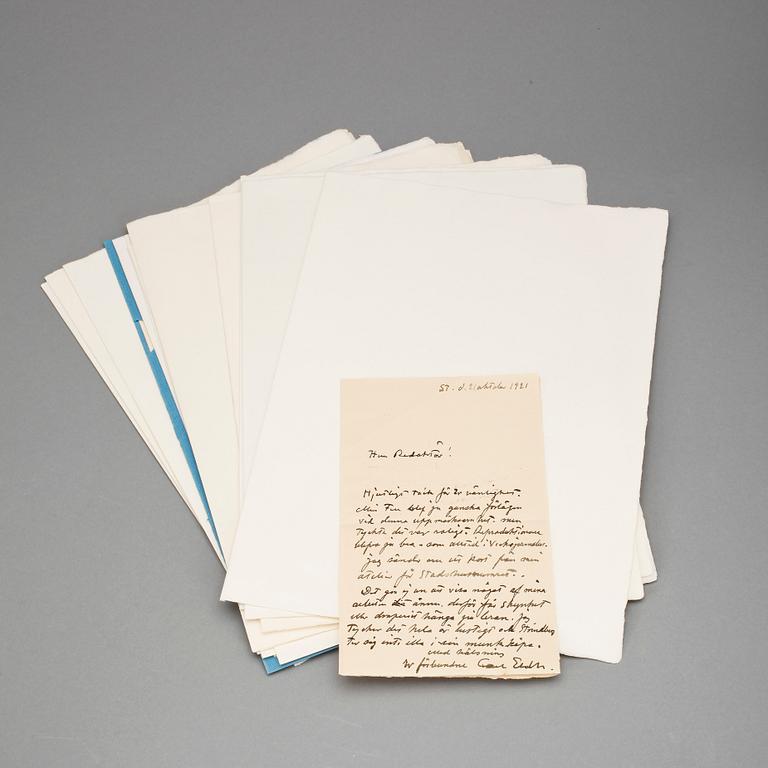 St. d. 21 oktober 1921
Herr Redaktör!
Hjertligt tack för Er vänlighet.
Min Fru blef ju ganska förlägen
vid denna uppmärksamhet. men
tyckte det var roligt. Reproduktionen
blefvo ju bra - som alltid i Veckojournalen.
jag sände om ett kort från min
atelier för Stadshusnumret.
Det går ej an att visa något af mina
arbeten där ännu. derför får skynket
eller draperiet hänga på leran. Jag
tycker det hela är lustigt och Strindberg
ter sig inte illa i sin munkkåpa.
med hälsning
Er förbundne Carl Eldh.